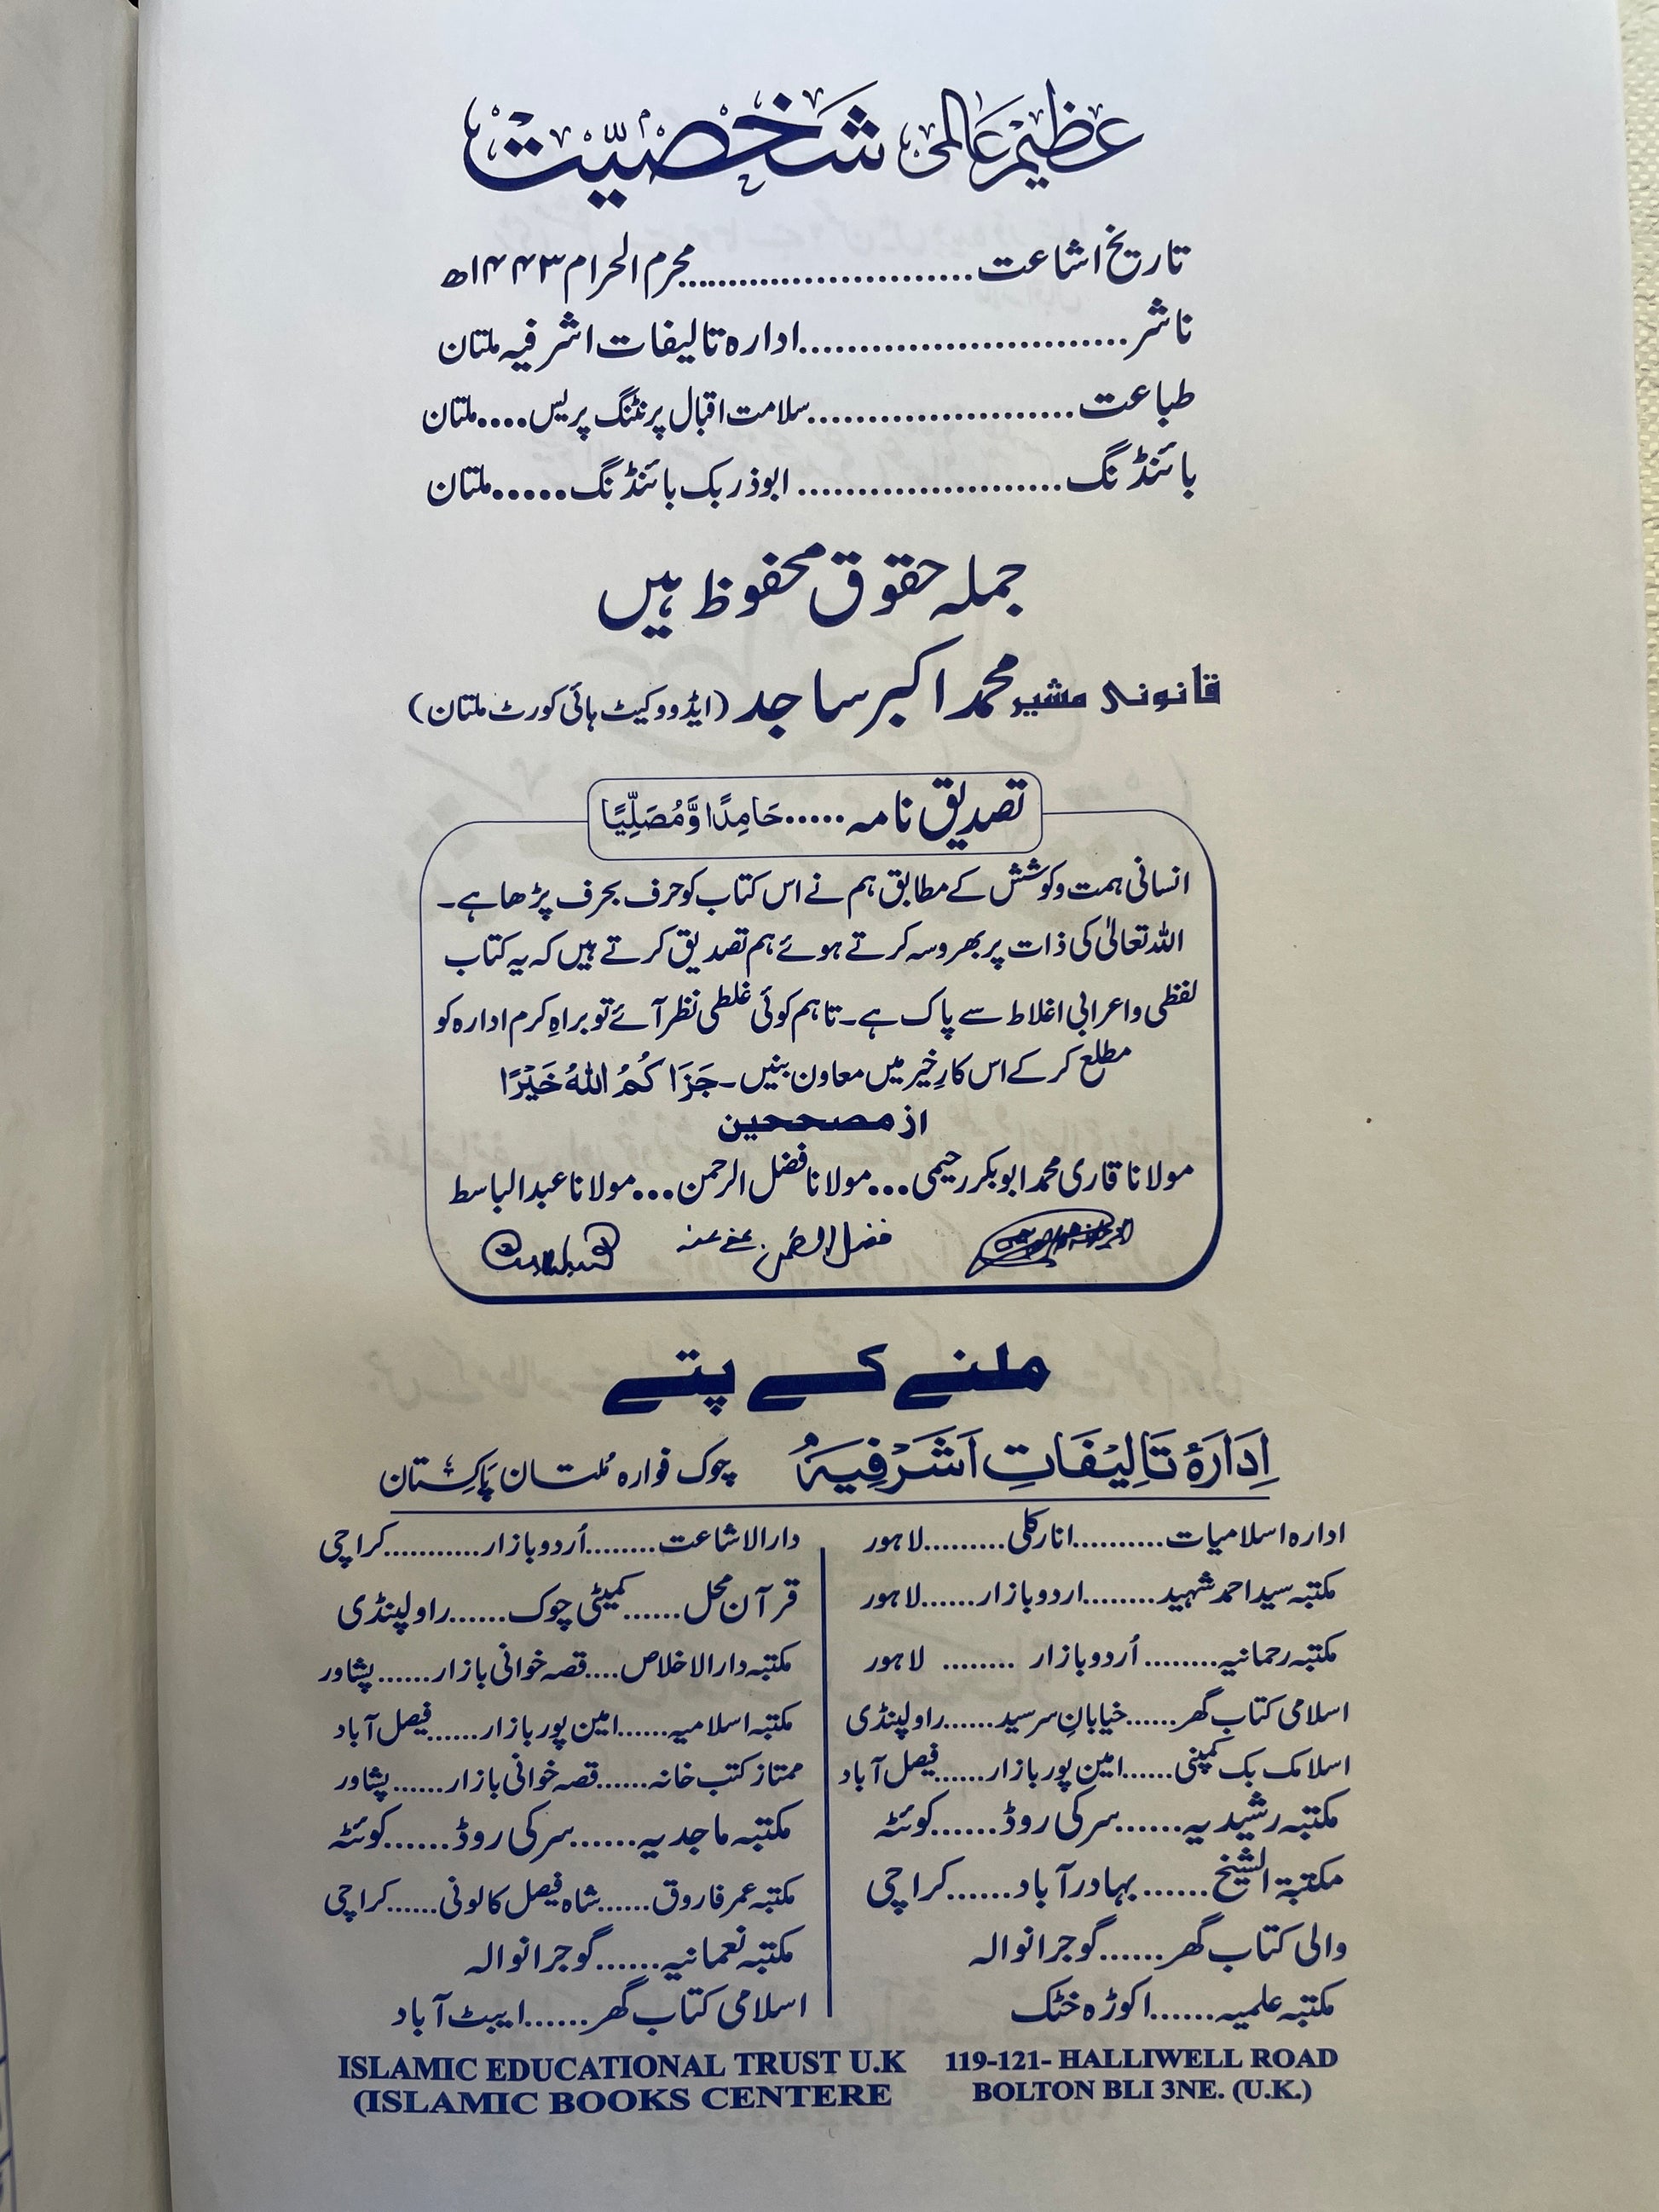 عظیم عالمی شخصیّت
تاریخ اشاعت............................محرم الحرام ۱۴۴۳ھ
ناشر............................ادارہ تالیفات اشرفیہ ملتان
طباعت.......................سلامت اقبال پرنٹنگ پریس....ملتان
بائنڈنگ......................ابوذر بک بائنڈنگ......ملتان
جملہ حقوق محفوظ ہیں
قانونی مشیر محمد اکبر ساجد (ایڈووکیٹ ہائی کورٹ ملتان)
تصدیق نامہ......حَامِدًا وَّمُصَلِّیًا
انسانی ہمت وکوشش کے مطابق ہم نے اس کتاب کو حرف بحرف پڑھا ہے۔
اللہ تعالیٰ کی ذات پر بھروسہ کرتے ہوئے ہم تصدیق کرتے ہیں کہ یہ کتاب
لفظی و اعرابی اغلاط سے پاک ہے۔ تاہم کوئی غلطی نظر آئے تو براہِ کرم ادارہ کو
مطلع کرکے اس کارِ خیر میں معاون بنیں۔ جَزَاکُمُ اللہُ خَیْرًا
از مصححین
مولانا قاری محمد ابوبکر رحیمی...مولانا فضل الرحمن...مولانا عبدالباسط
فضل الرحمن عفی عنہ
ملنے کے پتے
اِدَارَۂ تَالِیْفَاتِ اَشْرَفِیَہ چوک فوارہ مُلتان پَاکِستان
ادارہ اسلامیات..........انارکلی.........لاہور
مکتبہ سید احمد شہید........اردو بازار......لاہور
مکتبہ رحمانیہ........اُردو بازار ........ لاہور
اسلامی کتاب گھر......خیابانِ سرسید......راولپنڈی
اسلامک بک کمپنی......امین پور بازار......فیصل آباد
مکتبہ رشیدیہ......سرکی روڈ......کوئٹہ
مکتبۃ الشیخ......بہادر آباد......کراچی
والی کتاب گھر......گوجرانوالہ
مکتبہ علمیہ......اکوڑہ خٹک
دارالاشاعت........اُردو بازار...........کراچی
قرآن محل......کمیٹی چوک......راولپنڈی
مکتبہ دارالاخلاص....قصہ خوانی بازار......پشاور
مکتبہ اسلامیہ......امین پور بازار......فیصل آباد
ممتاز کتب خانہ......قصہ خوانی بازار......پشاور
مکتبہ ماجدیہ......سرکی روڈ......کوئٹہ
مکتبہ عمر فاروق......شاہ فیصل کالونی......کراچی
مکتبہ نعمانیہ......گوجرانوالہ
اسلامی کتاب گھر......ایبٹ آباد
ISLAMIC EDUCATIONAL TRUST U.K
(ISLAMIC BOOKS CENTERE
119-121- HALLIWELL ROAD
BOLTON BLI 3NE. (U.K.)